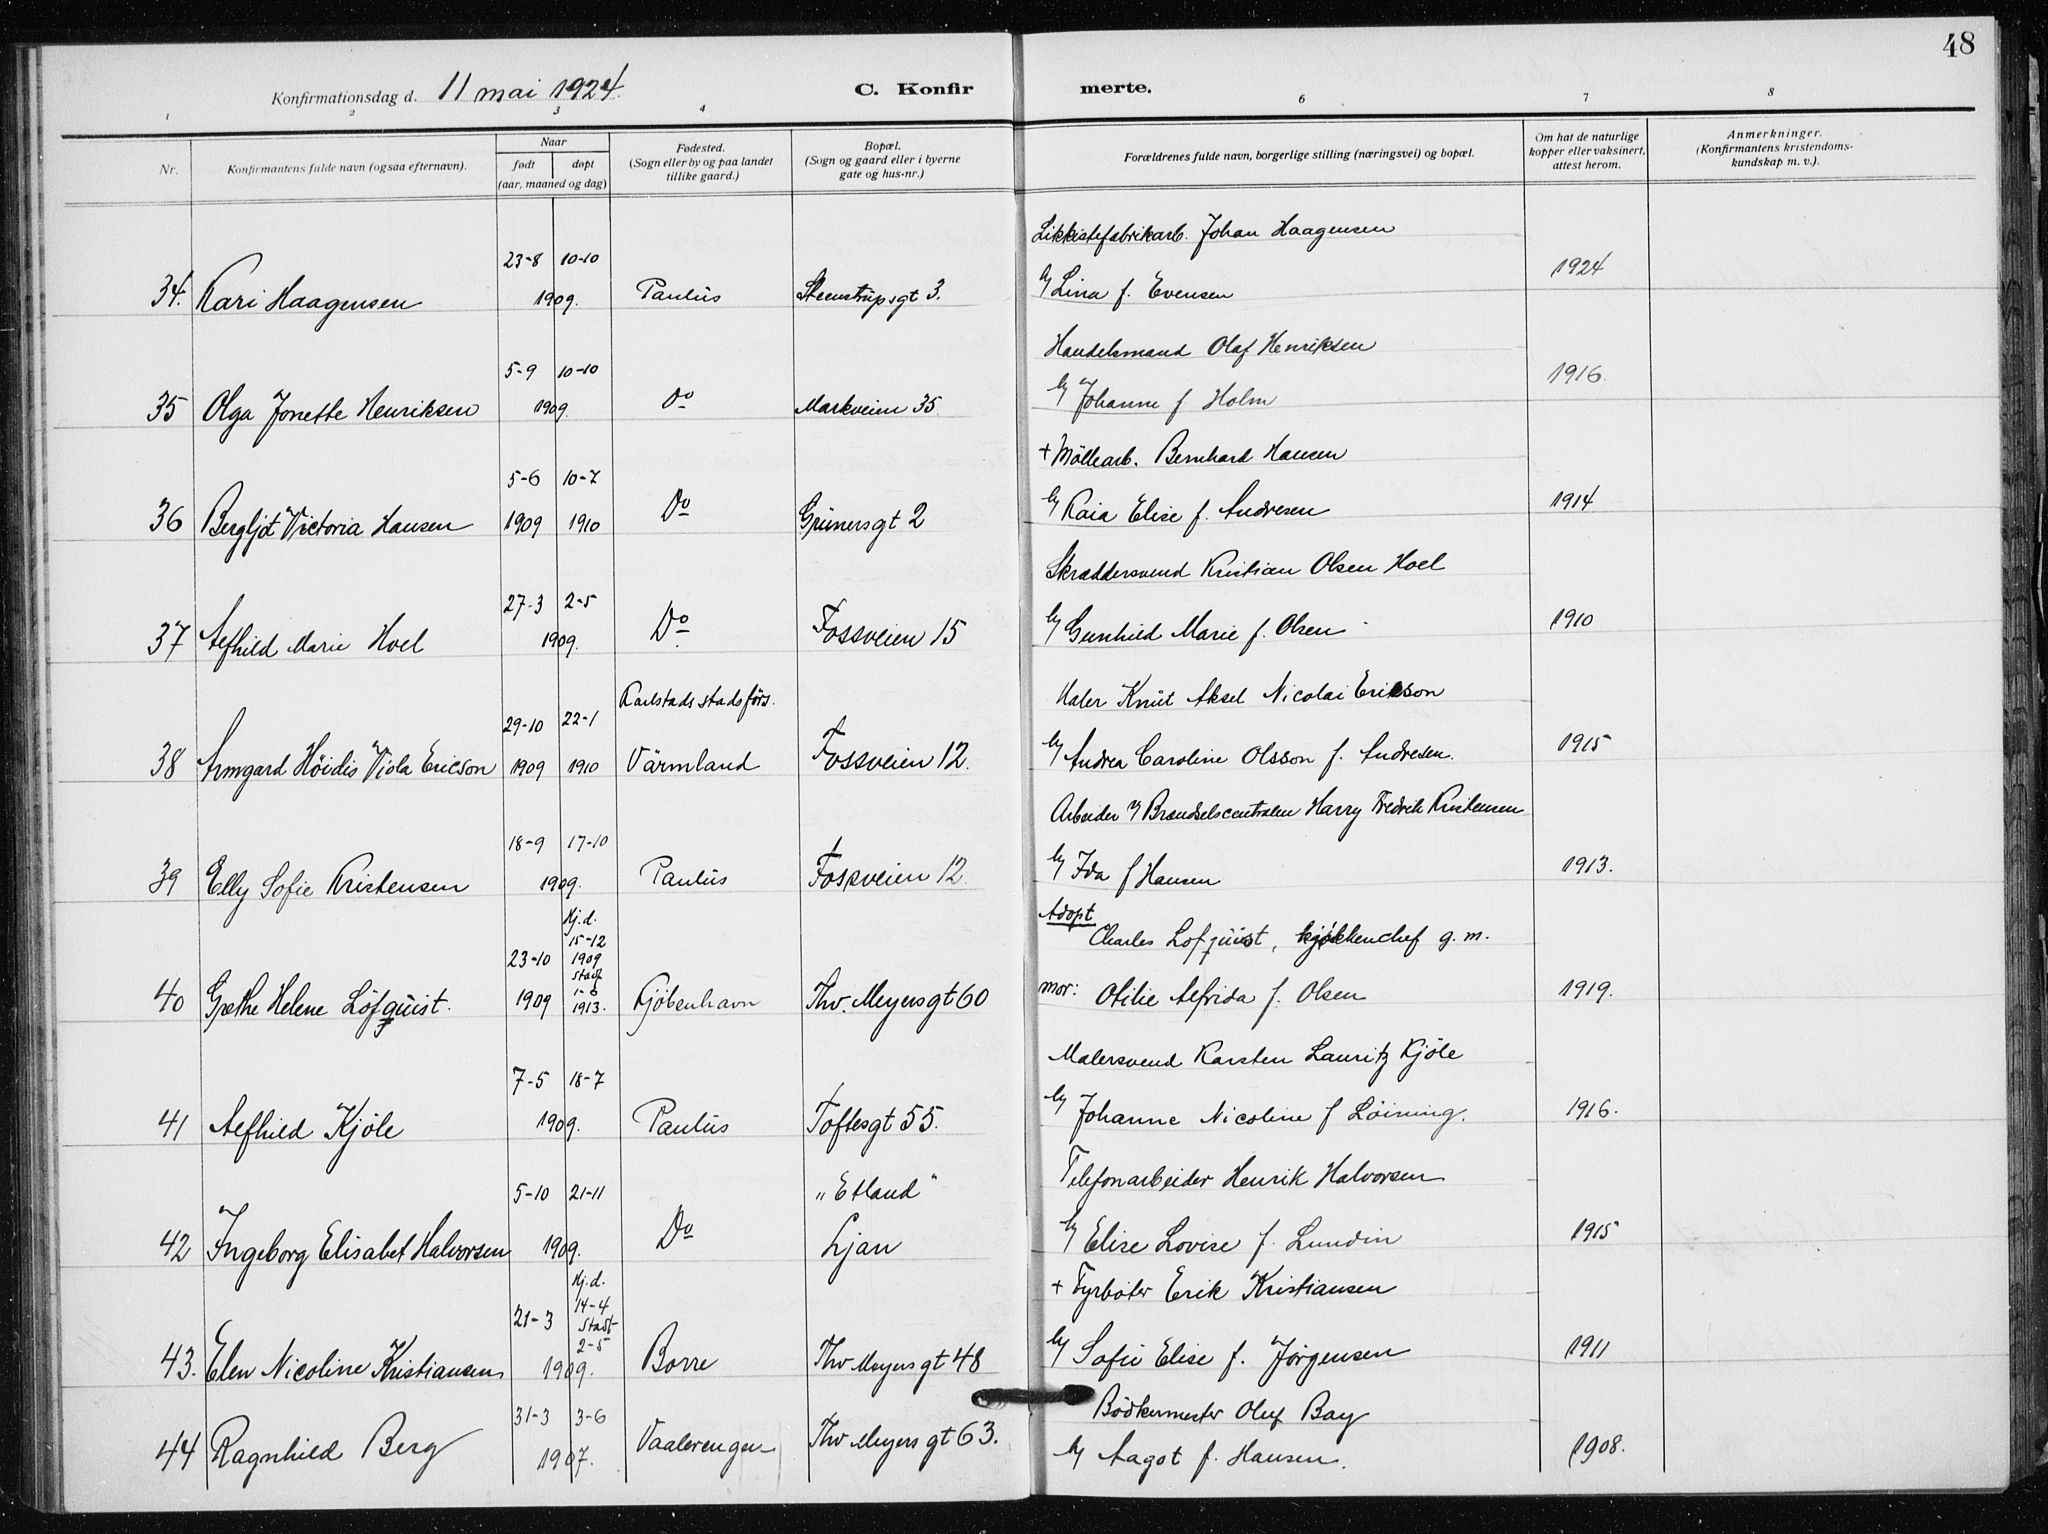 48
Konfirmationsdag d. 11 mai 1924.
C. Konfir merte.
1 2 3 4 6 7 8
Nr.
Konfirmantens fulde navn (ogsaa efternavn).
Naar
født døpt
(aar, maaned og dag)
Fødested.
(Sogn eller by og paa landet
tillike gaard.)
Bopæl.
(Sogn og gaard eller i byerne
gate og hus-nr.)
Forældrenes fulde navn, borgerlige stilling (næringsvei) og bopæl.
Om hat de naturlige
kopper eller vaksinert,
attest herom.
Anmerkninger.
(Konfirmantens kristendoms-
kundskap m. v.).
Likkistefabrikarb. Johan Haagensen
23-8 10-10
34. Kari Haagensen 1909. Paulus Steenstrupsgt 3. Lina f. Evensen 1924
Handelsmand Olaf Henriksen
5-9 10-10
35 Olga Jonette Henriksen 1909. Do Markveien 35. Johanne f Holm 1916.
+ Møllearb. Bernhard Hansen
5-6 10-7
36 Bergljot Victoria Hansen 1909 1910 Do Grünersgt 2 Kaia Elise f. Andresen 1914
Skræddersvend Kristian Olsen Hoel
27-3 2-5
37 Alfhild Marie Hoel 1909. Do Fossveien 15 Gunhild Marie f. Olsen 1910
Maler Knut Aksel Nicolai Erikson
29-10 22-1 Karlstads stadsförs.
38 Armgard Höidis Viola Ericson 1909 1910 Värmland Fossveien 12. Andrea Caroline Olsson f. Andresen. 1915
Arbeider v/ Brændselscentralen Harry Fredrik Kristensen
18-9 17-10
39 Elly Sofie Kristensen 1909. Paulus Fossveien 12. Ida f Hansen 1913.
Adopt
Charles Lofquist, kjøkkenchef g. m.
Hj.d.
15-12
23-10 1909
stadf
1-6
40 Grethe Helene Löfquist. 1909 1913. Kjøbenhavn Thv. Meyersgt 60 mor: Otilie Alfrida f. Olsen 1919.
Malersvend Karsten Lauritz Kjöle
7-5 18-7
41 Alfhild Kjöle 1909. Paulus Toftesgt 55. Johanne Nicoline f Löining. 1916.
Telefonarbeider Henrik Halvorsen
5-10 21-11 "Etland"
42 Ingeborg Elisabet Halvorsen 1909. Do Ljan Elise Lovise f. Lundin 1915
+ Fyrbøter Erik Kristiansen
Hj.d.
14-4
21-3 stadf
2-5
43. Elen Nicoline Kristiansen 1909. Borre Thv Meyersgt 48 Sofie Elise f. Jørgensen 1911
Bödkermester Oluf Bay
31-3 3-6
44 Ragnhild Berg 1907. Vaalerengen Thv Meyersgt 63. Aagot f. Hansen. 1908.